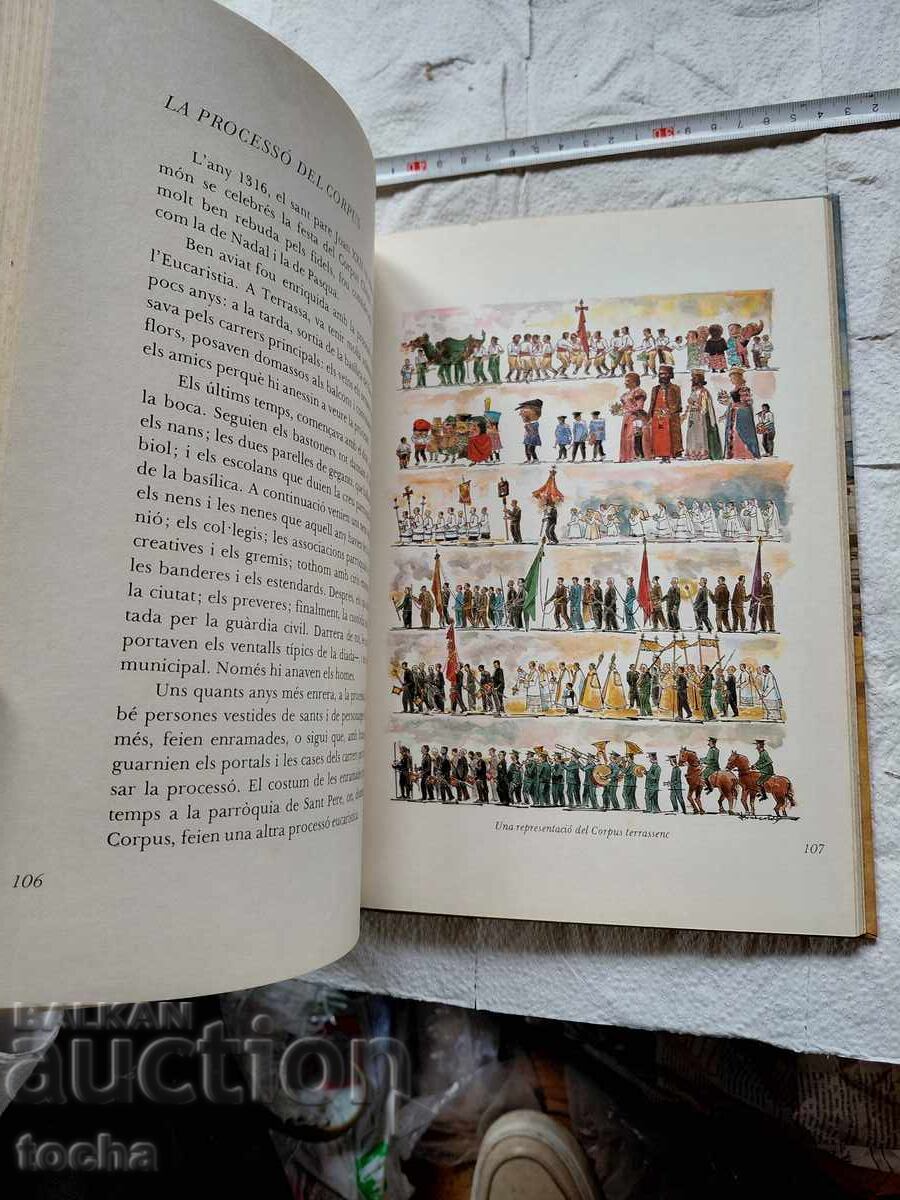 LA PROCESSÓ DEL CORPUS
L'any 1316, el sant pare Joan XXII
món se celebrés la festa del Corpus
molt ben rebuda pels fidels, fou
com la de Nadal i la de Pasqua.
Ben aviat fou enriquida amb la
l'Eucaristia. A Terrassa, va tenir molta
pocs anys: a la tarda, sortia de la basílica
sava pels carrers principals; els veïns
flors, posaven domassos als balcons i
els amics perquè hi anessin a veure la
Els últims temps, començava amb el
la boca. Seguien els bastoners tot
els nans; les dues parelles de gegants,
biol; i els escolans que duien la creu
de la basílica. A continuació venien un
els nens i les nenes que aquell any havien
nió; els col·legis; les associacions
creatives i els gremis; tothom amb
les banderes i els estendards. Després,
la ciutat; els preveres; finalment, la custòdia
tada per la guàrdia civil. Darrera de tot,
portaven els ventalls típics de la diada—
municipal. Només hi anaven els homes.
Uns quants anys més enrera, a la processó
bé persones vestides de sants i de personatges
més, feien enramades, o sigui que, amb
guarnien els portals i les cases dels carrers
sar la processó. El costum de les enramades
temps a la parròquia de Sant Pere, on,
Corpus, feien una altra processó eucarística.
106
Una representació del Corpus terrassenc
107
BALKAN
auction
tocha